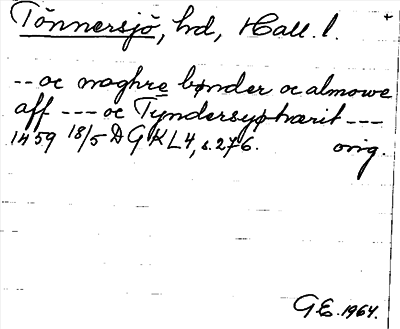 Tönnersjö, hd, Hall. l. +
-- oc noghre bønder oc almowe
aff --- oc Tyndersyøhærit ---
1459 18/5 DGKL4, s. 276. orig.
GE. 1964.